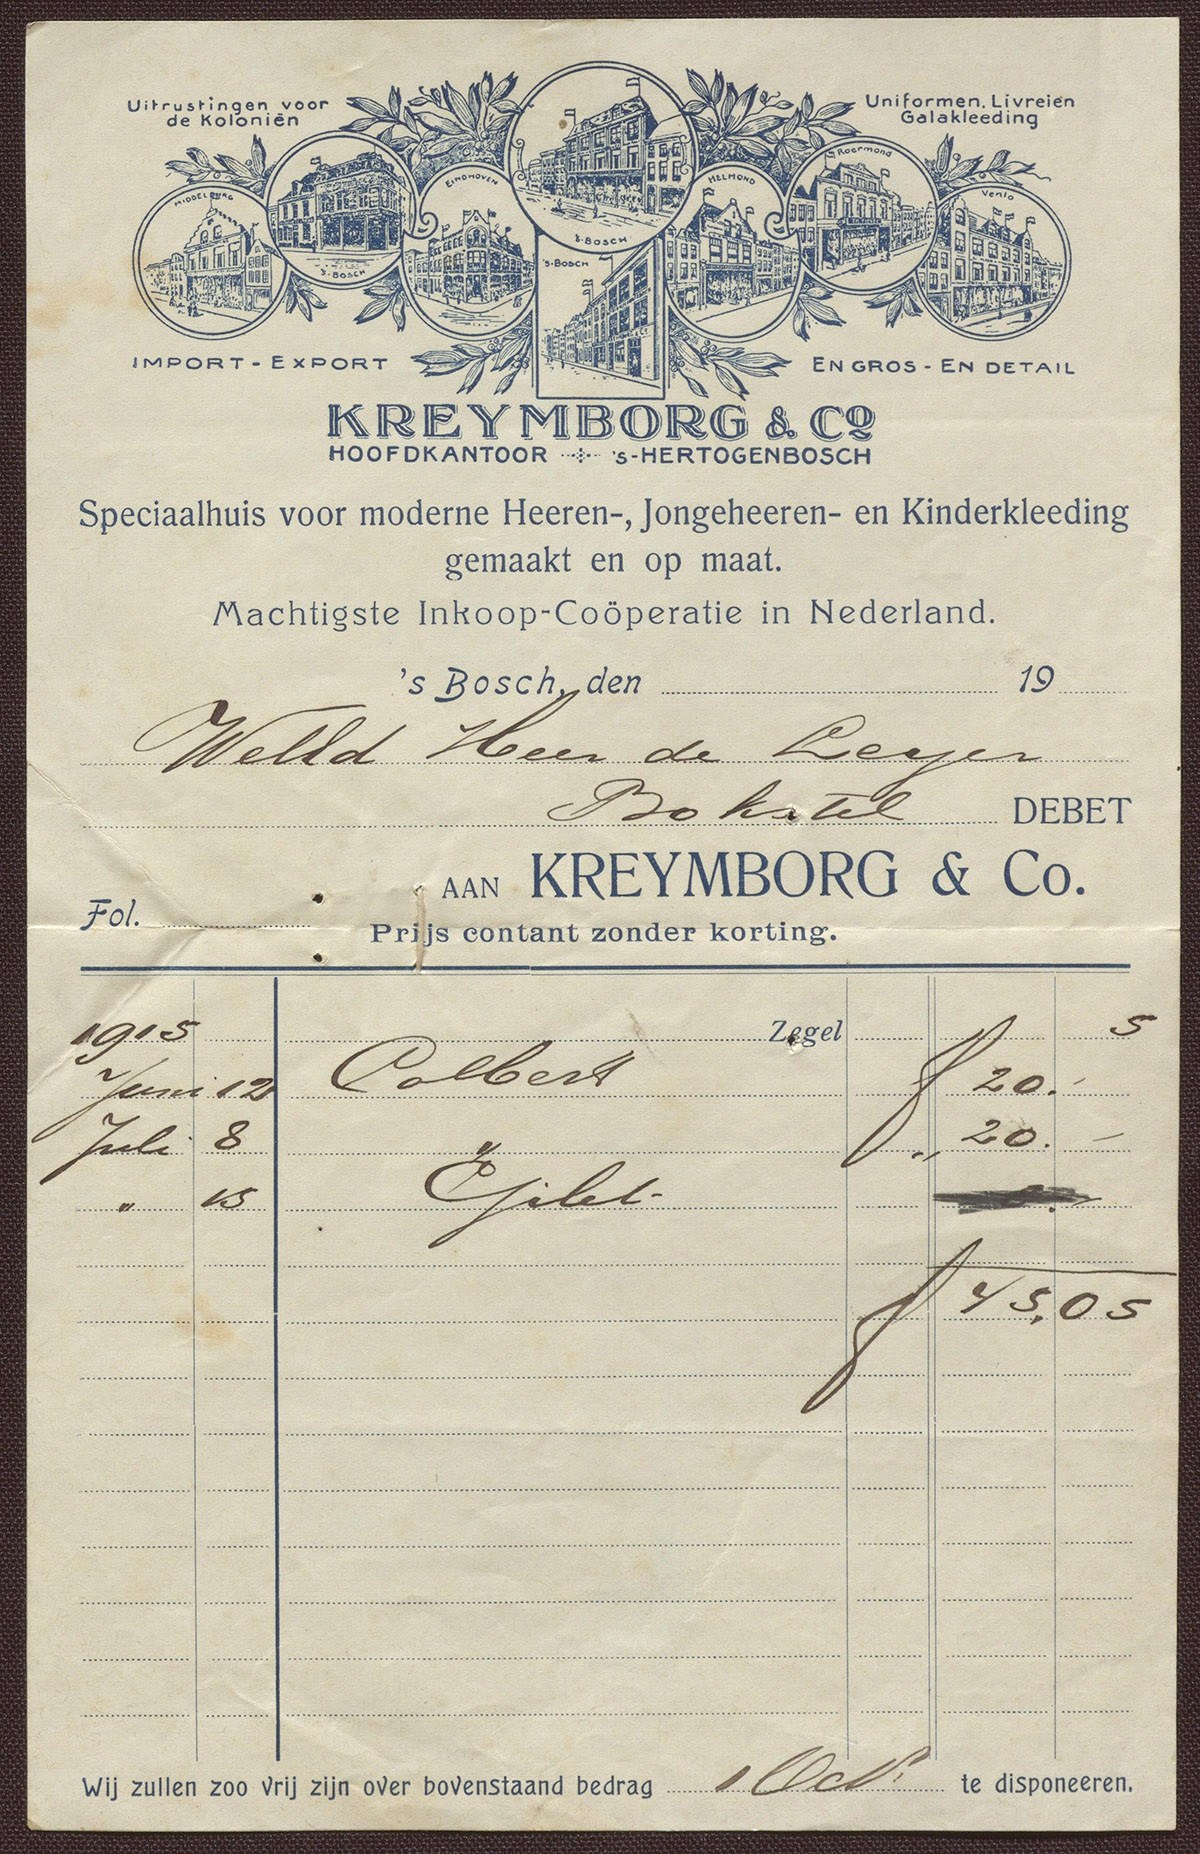 Uitrustingen voor
de Koloniën
Uniformen, Livreien
Galakleeding
MIDDELBURG
'S-BOSCH
EINDHOVEN
'S-BOSCH
'S-BOSCH
HELMOND
Roermond
Venlo
IMPORT - EXPORT
EN GROS - EN DETAIL
KREYMBORG & Co
HOOFDKANTOOR 's-HERTOGENBOSCH
Speciaalhuis voor moderne Heeren-, Jongeheeren- en Kinderkleeding
gemaakt en op maat.
Machtigste Inkoop-Coöperatie in Nederland.
's Bosch, den 19
WelEd Heer de Leyer
Bokstel DEBET
AAN KREYMBORG & Co.
Fol.
Prijs contant zonder korting.
1915 Zegel 5
Juni 12 Colbert f 20.-
Juli 8 " " 20. -
" 15 Gilet
f 45,05
Wij zullen zoo vrij zijn over bovenstaand bedrag 1 Oct. te disponeeren.